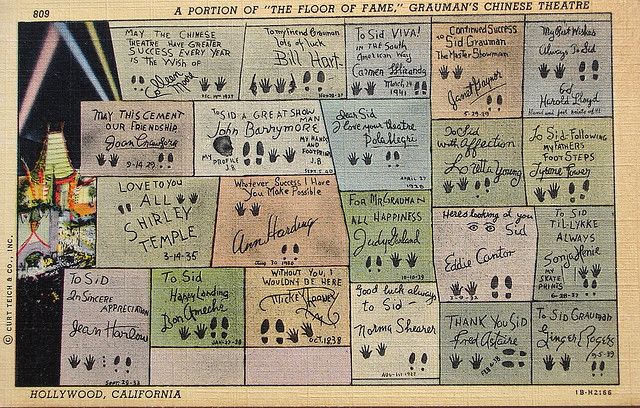 809
A PORTION OF "THE FLOOR OF FAME," GRAUMAN'S CHINESE THEATRE
MAY THE CHINESE
THEATRE HAVE GREATER
SUCCESS EVERY YEAR
IS THE WISH OF
Colleen
Moore
DEC. 19TH 1927
To my friend Grauman
lots of luck
Bill Hart-
NOV-28-27
To Sid VIVA!
in the South
American Way
Carmen Miranda
March 24
1941
Continued Success
to Sid Grauman
The Master Showman
Janet Gaynor
5-29-29
My Best Wishes
Always To Sid
Harold Lloyd
MAY THIS CEMENT
OUR FRIENDSHIP
Joan Crawford
9-14-29
TO SID A GREAT SHOW
MAN
John Barrymore
MY PROFILE
J.B
MY HANDS
AND
FOOTPRINTS
J.B
SEPT 5 40
Dear Sid
I love your theatre
Pola Negri
APRIL 27
1928
To Sid
with Affection
Loretta Young
To Sid-Following
my FATHERS
FOOT STEPS
Tyrone Power
LOVE TO YOU
ALL
SHIRLEY
TEMPLE
3-14-35
Whatever Success I Have
You Make Possible
Ann Harding
Aug 30 1930
FOR MR GRAUMAN
ALL HAPPINESS
Judy Garland
10-10-39
Heres looking at you
Sid
Eddie Cantor
3-9-32
TO SID
TIL LYKKE
ALWAYS
Sonja Henie
MY
SKATE
PRINTS
6-28-37
To SiD
In Sincere
APPRECIATION
Jean Harlow
SEPT. 29-33
To Sid
Happy Landing
Don Ameche
JAN-27-38
WITHOUT YOU, I
WOULDN'T BE HERE
Mickey Rooney
OCT. 1938
Good luck always
to Sid-
Norma Shearer
AUG-1ST 1927
THANK YOU SID
Fred Astaire
FEB 4 38
To SID GRAUMAN
Ginger Rogers
9-5-39
© CURT TEICH & CO., INC.
HOLLYWOOD, CALIFORNIA
1B-H2166